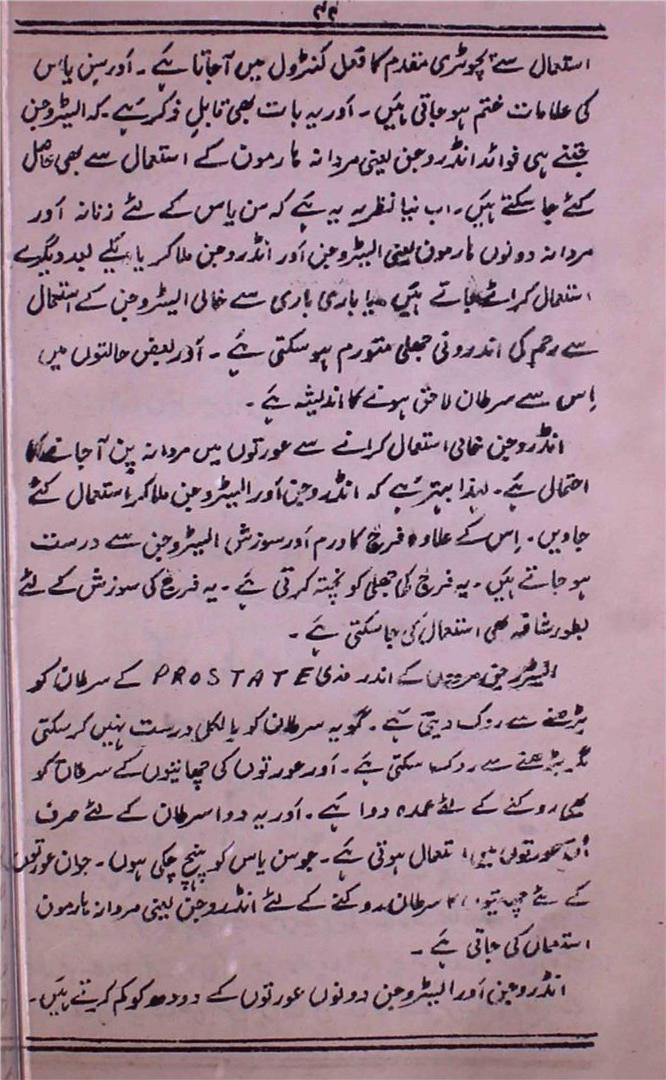 ۴۴
استعمال سے پچوٹری متقدم کا فعل کنٹرول میں آجاتا ہے۔ اور سن یاس
کی علامات ختم ہو جاتی ہیں۔ اور یہ بات بھی قابلِ ذکر ہے کہ السیٹروجن
جتنے ہی فوائد انڈروجن یعنی مردانہ ہارمون کے استعمال سے بھی حاصل
کئے جا سکتے ہیں۔ اب نیا نظریہ یہ ہے کہ سن یاس کے لئے زنانہ اور
مردانہ دونوں ہارمون یعنی السیٹروجن اور انڈروجن ملا کر یا یکے بعد دیگرے
استعمال کرائے جاتے ہیں یا باری باری سے خالی السیٹروجن کے استعمال
سے رحم کی اندرونی جھلی متورم ہو سکتی ہے۔ اور بعض حالتوں میں
اِس سے سرطان لاحق ہونے کا اندیشہ ہے۔
انڈروجن خالی استعمال کرانے سے عورتوں میں مردانہ پن آجانے کا
احتمال ہے۔ لہٰذا بہتر ہے کہ انڈروجن اور السیٹروجن ملا کر استعمال کئے
جاویں۔ اِس کے علاوہ فرج کا ورم اور سوزش السیٹروجن سے درست
ہو جاتے ہیں۔ یہ فرج کی جھلی کو پختہ کرتی ہے۔ یہ فرج کی سوزش کے لئے
بطور شافہ بھی استعمال کی جا سکتی ہے۔
السیٹروجن مردوں کے اندر غدی PROSTATE کے سرطان کو
بڑھنے سے روک دیتی ہے۔ گو یہ سرطان کو بالکل درست نہیں کر سکتی
مگر بڑھنے سے روک سکتی ہے۔ اور عورتوں کی چھاتیوں کے سرطان کو
بھی روکنے کے لئے عمدہ دوا ہے۔ اور یہ دوا سرطان کے لئے صرف
اُن عورتوں میں استعمال ہوتی ہے۔ جو سن یاس کو پہنچ چکی ہوں۔ جوان عورتوں
کے لئے چھاتیوں کا سرطان روکنے کے لئے انڈروجن یعنی مردانہ ہارمون
استعمال کی جاتی ہے۔
انڈروجن اور السیٹروجن دونوں عورتوں کے دودھ کو کم کرتے ہیں۔